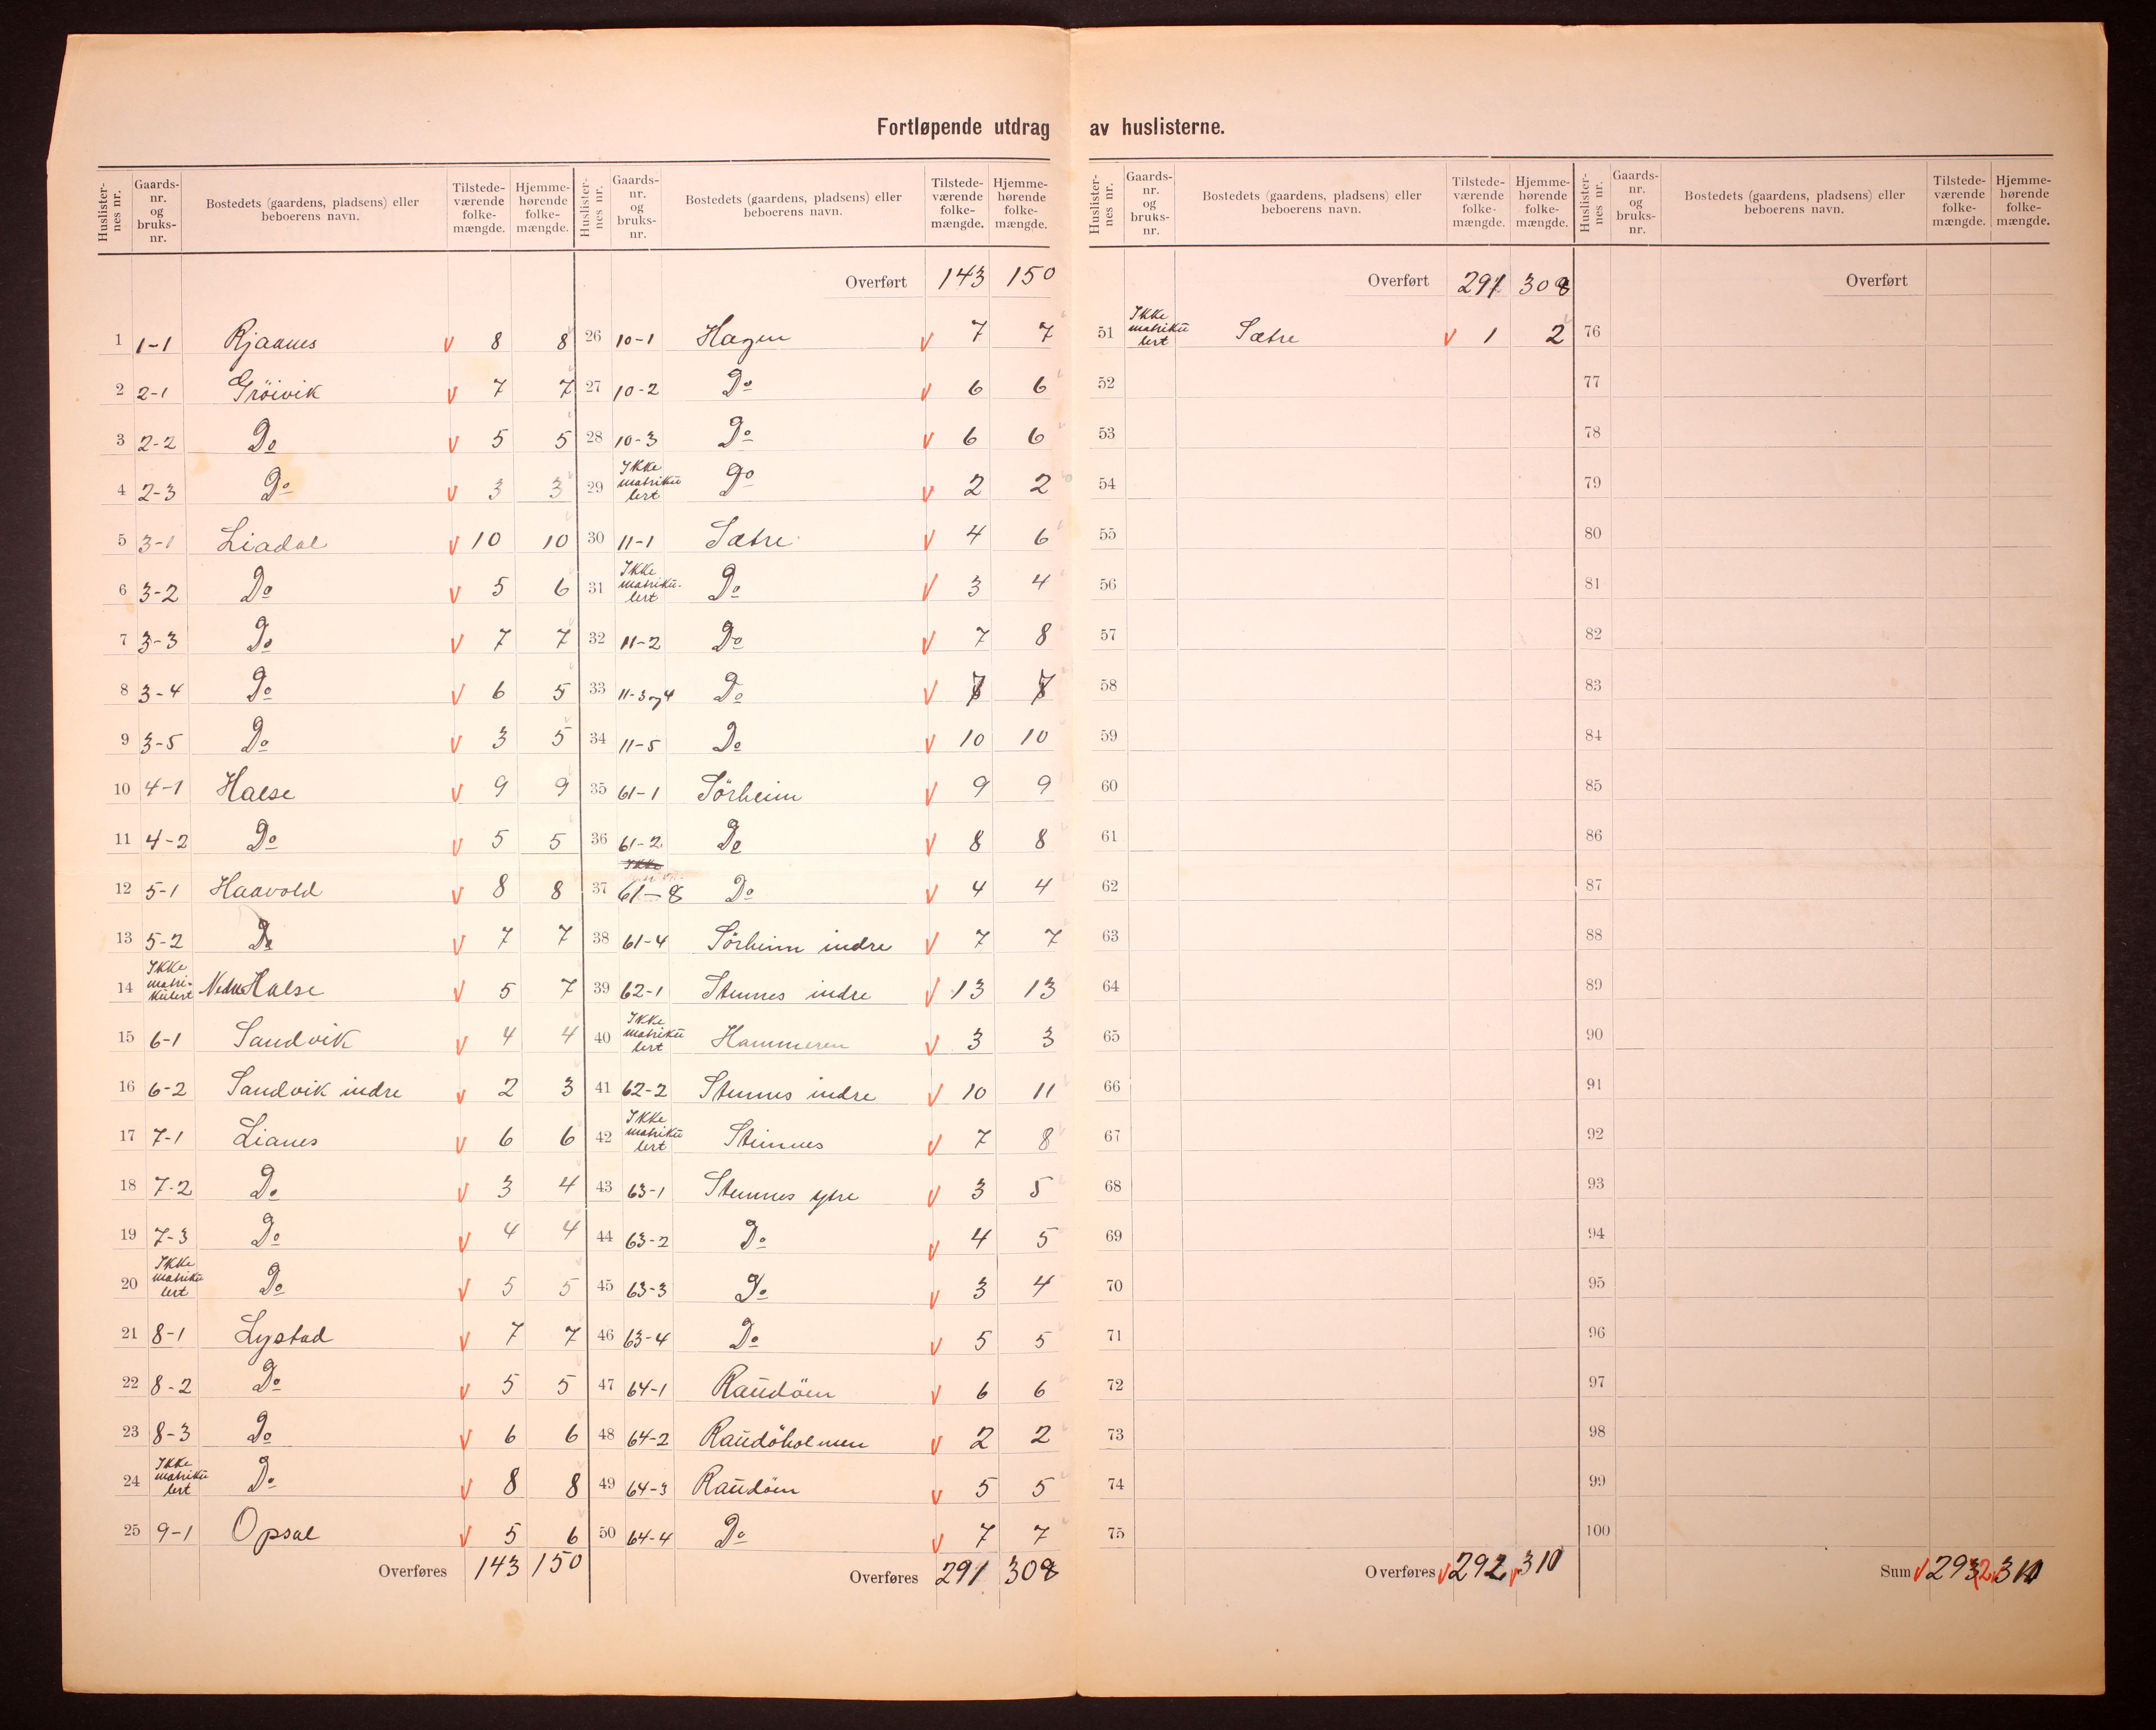 Fortløpende utdrag av huslisterne.
Huslister-nes nr. Gaards-nr. og bruks-nr. Bostedets (gaardens, pladsens) eller beboerens navn. Tilstede-værende folke-mængde. Hjemme-hørende folke-mængde.
1 1-1 Rjaanes v 8 8
2 2-1 Gröivik v 7 7
3 2-2 Do v 5 5
4 2-3 Do v 3 3
5 3-1 Liadal v 10 10
6 3-2 Do v 5 6
7 3-3 Do v 7 7
8 3-4 Do v 6 5
9 3-5 Do v 3 5
10 4-1 Halse v 9 9
11 4-2 Do v 5 5
12 5-1 Haavold v 8 8
13 5-2 Do v 7 7
14 Ikke matri-kulert Nedre Halse v 5 7
15 6-1 Sandvik v 4 4
16 6-2 Sandvik indre v 2 3
17 7-1 Lianes v 6 6
18 7-2 Do v 3 4
19 7-3 Do v 4 4
20 Ikke matriku lert Do v 5 5
21 8-1 Lystad v 7 7
22 8-2 Do v 5 5
23 8-3 Do v 6 6
24 Ikke matriku lert Do v 8 8
25 9-1 Opsal v 5 6
Overføres 143 150
Huslister-nes nr. Gaards-nr. og bruks-nr. Bostedets (gaardens, pladsens) eller beboerens navn. Tilstede-værende folke-mængde. Hjemme-hørende folke-mængde.
Overført 143 150
26 10-1 Hagen v 7 7
27 10-2 Do v 6 6
28 10-3 Do v 6 6
29 Ikke matriku lert Do v 2 2
30 11-1 Sætre v 4 6
31 Ikke matriku-lert Do v 3 4
32 11-2 Do v 7 8
33 11-3og4 Do v 7 7
34 11-5 Do v 10 10
35 61-1 Sörheim v 9 9
36 61-2 Do v 8 8
37 Ikke 61-8 Do v 4 4
38 61-4 Sörheim indre v 7 7
39 62-1 Stennes indre v 13 13
40 Ikke matriku lert Hammeren v 3 3
41 62-2 Stennes indre v 10 11
42 Ikke matriku lert Stennes v 7 8
43 63-1 Stennes ytre v 3 5
44 63-2 Do v 4 5
45 63-3 Do v 3 4
46 63-4 Do v 5 5
47 64-1 Raudöen v 6 6
48 64-2 Raudöholmen v 2 2
49 64-3 Raudöen v 5 5
50 64-4 Do v 7 7
Overføres 291 308
Huslister-nes nr. Gaards-nr. og bruks-nr. Bostedets (gaardens, pladsens) eller beboerens navn. Tilstede-værende folke-mængde. Hjemme-hørende folke-mængde.
Overført 291 308
51 Ikke matriku lert Sætre v 1 2
52
53
54
55
56
57
58
59
60
61
62
63
64
65
66
67
68
69
70
71
72
73
74
75
Overføres v 292 v 310
Huslister-nes nr. Gaards-nr. og bruks-nr. Bostedets (gaardens, pladsens) eller beboerens navn. Tilstede-værende folke-mængde. Hjemme-hørende folke-mængde.
Overført
76
77
78
79
80
81
82
83
84
85
86
87
88
89
90
91
92
93
94
95
96
97
98
99
100
Sum v 293 2 310